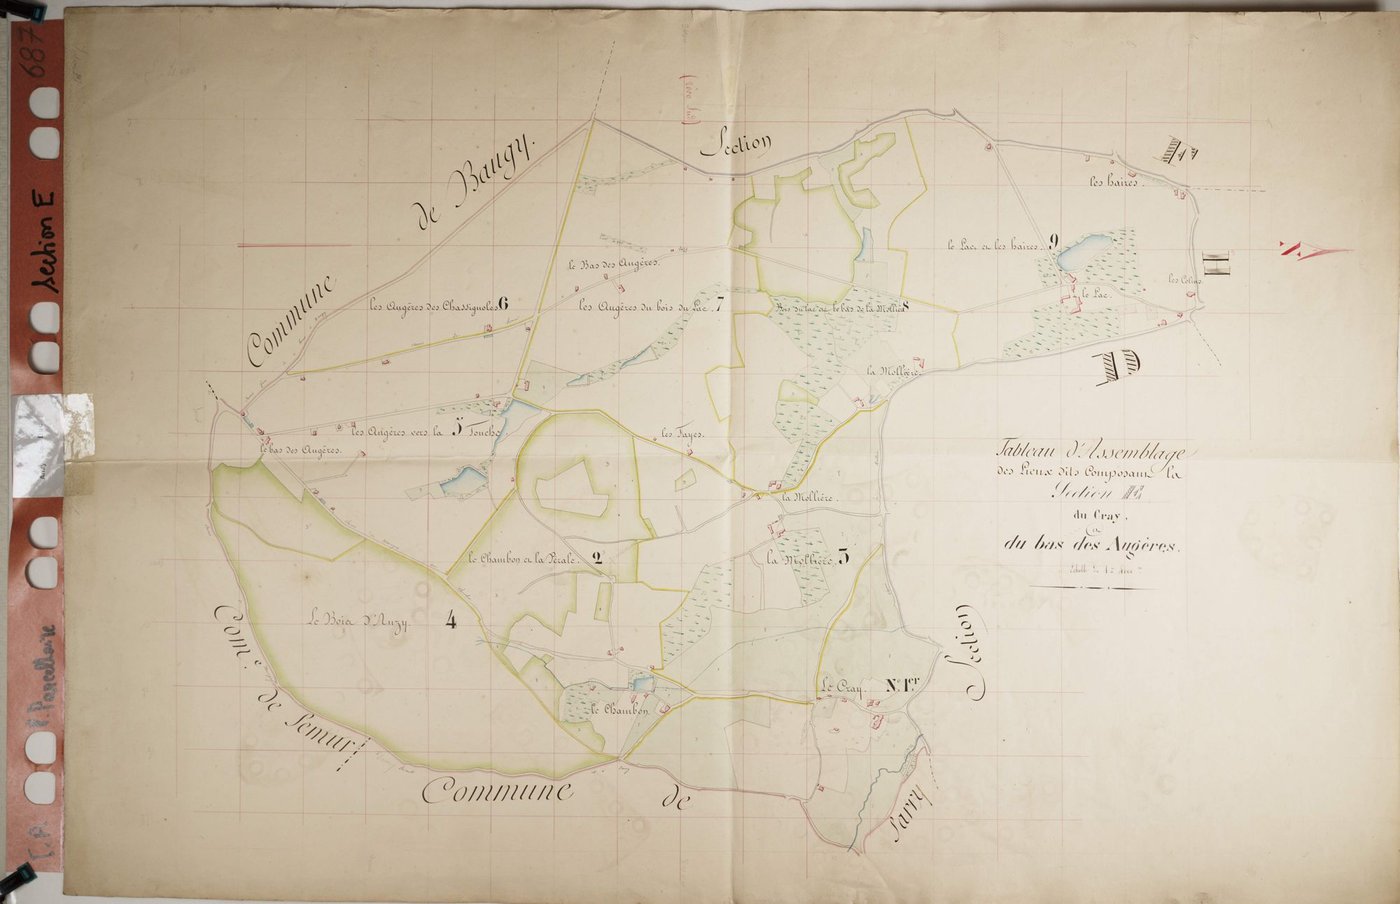 687
Section E
Parcellaire
T.A
Commune de Baugy.
Section
F
H
D
les haires.
le Lac et les haires. 9
le Lac.
le Bas des Augères.
les Augères des Chassignoles 6
les Augères du bois du Lac. 7
Bois du lac et le bas de la Mollière 8
la Mollière.
les Augères vers la 5 Touche
le bas des Augères.
les Fayes.
la Mollière.
Tableau d'Assemblage
des Lieux dits Composant la
Section E
du Cray,
Et
du bas des Augères.
le Chambon et la Pérale. 2
la Mollière. 3
Le Bois d'Auzy. 4
Le Cray. N.º 1.er
le Chambon
Section
Com.e de Semur
Commune de Sarry